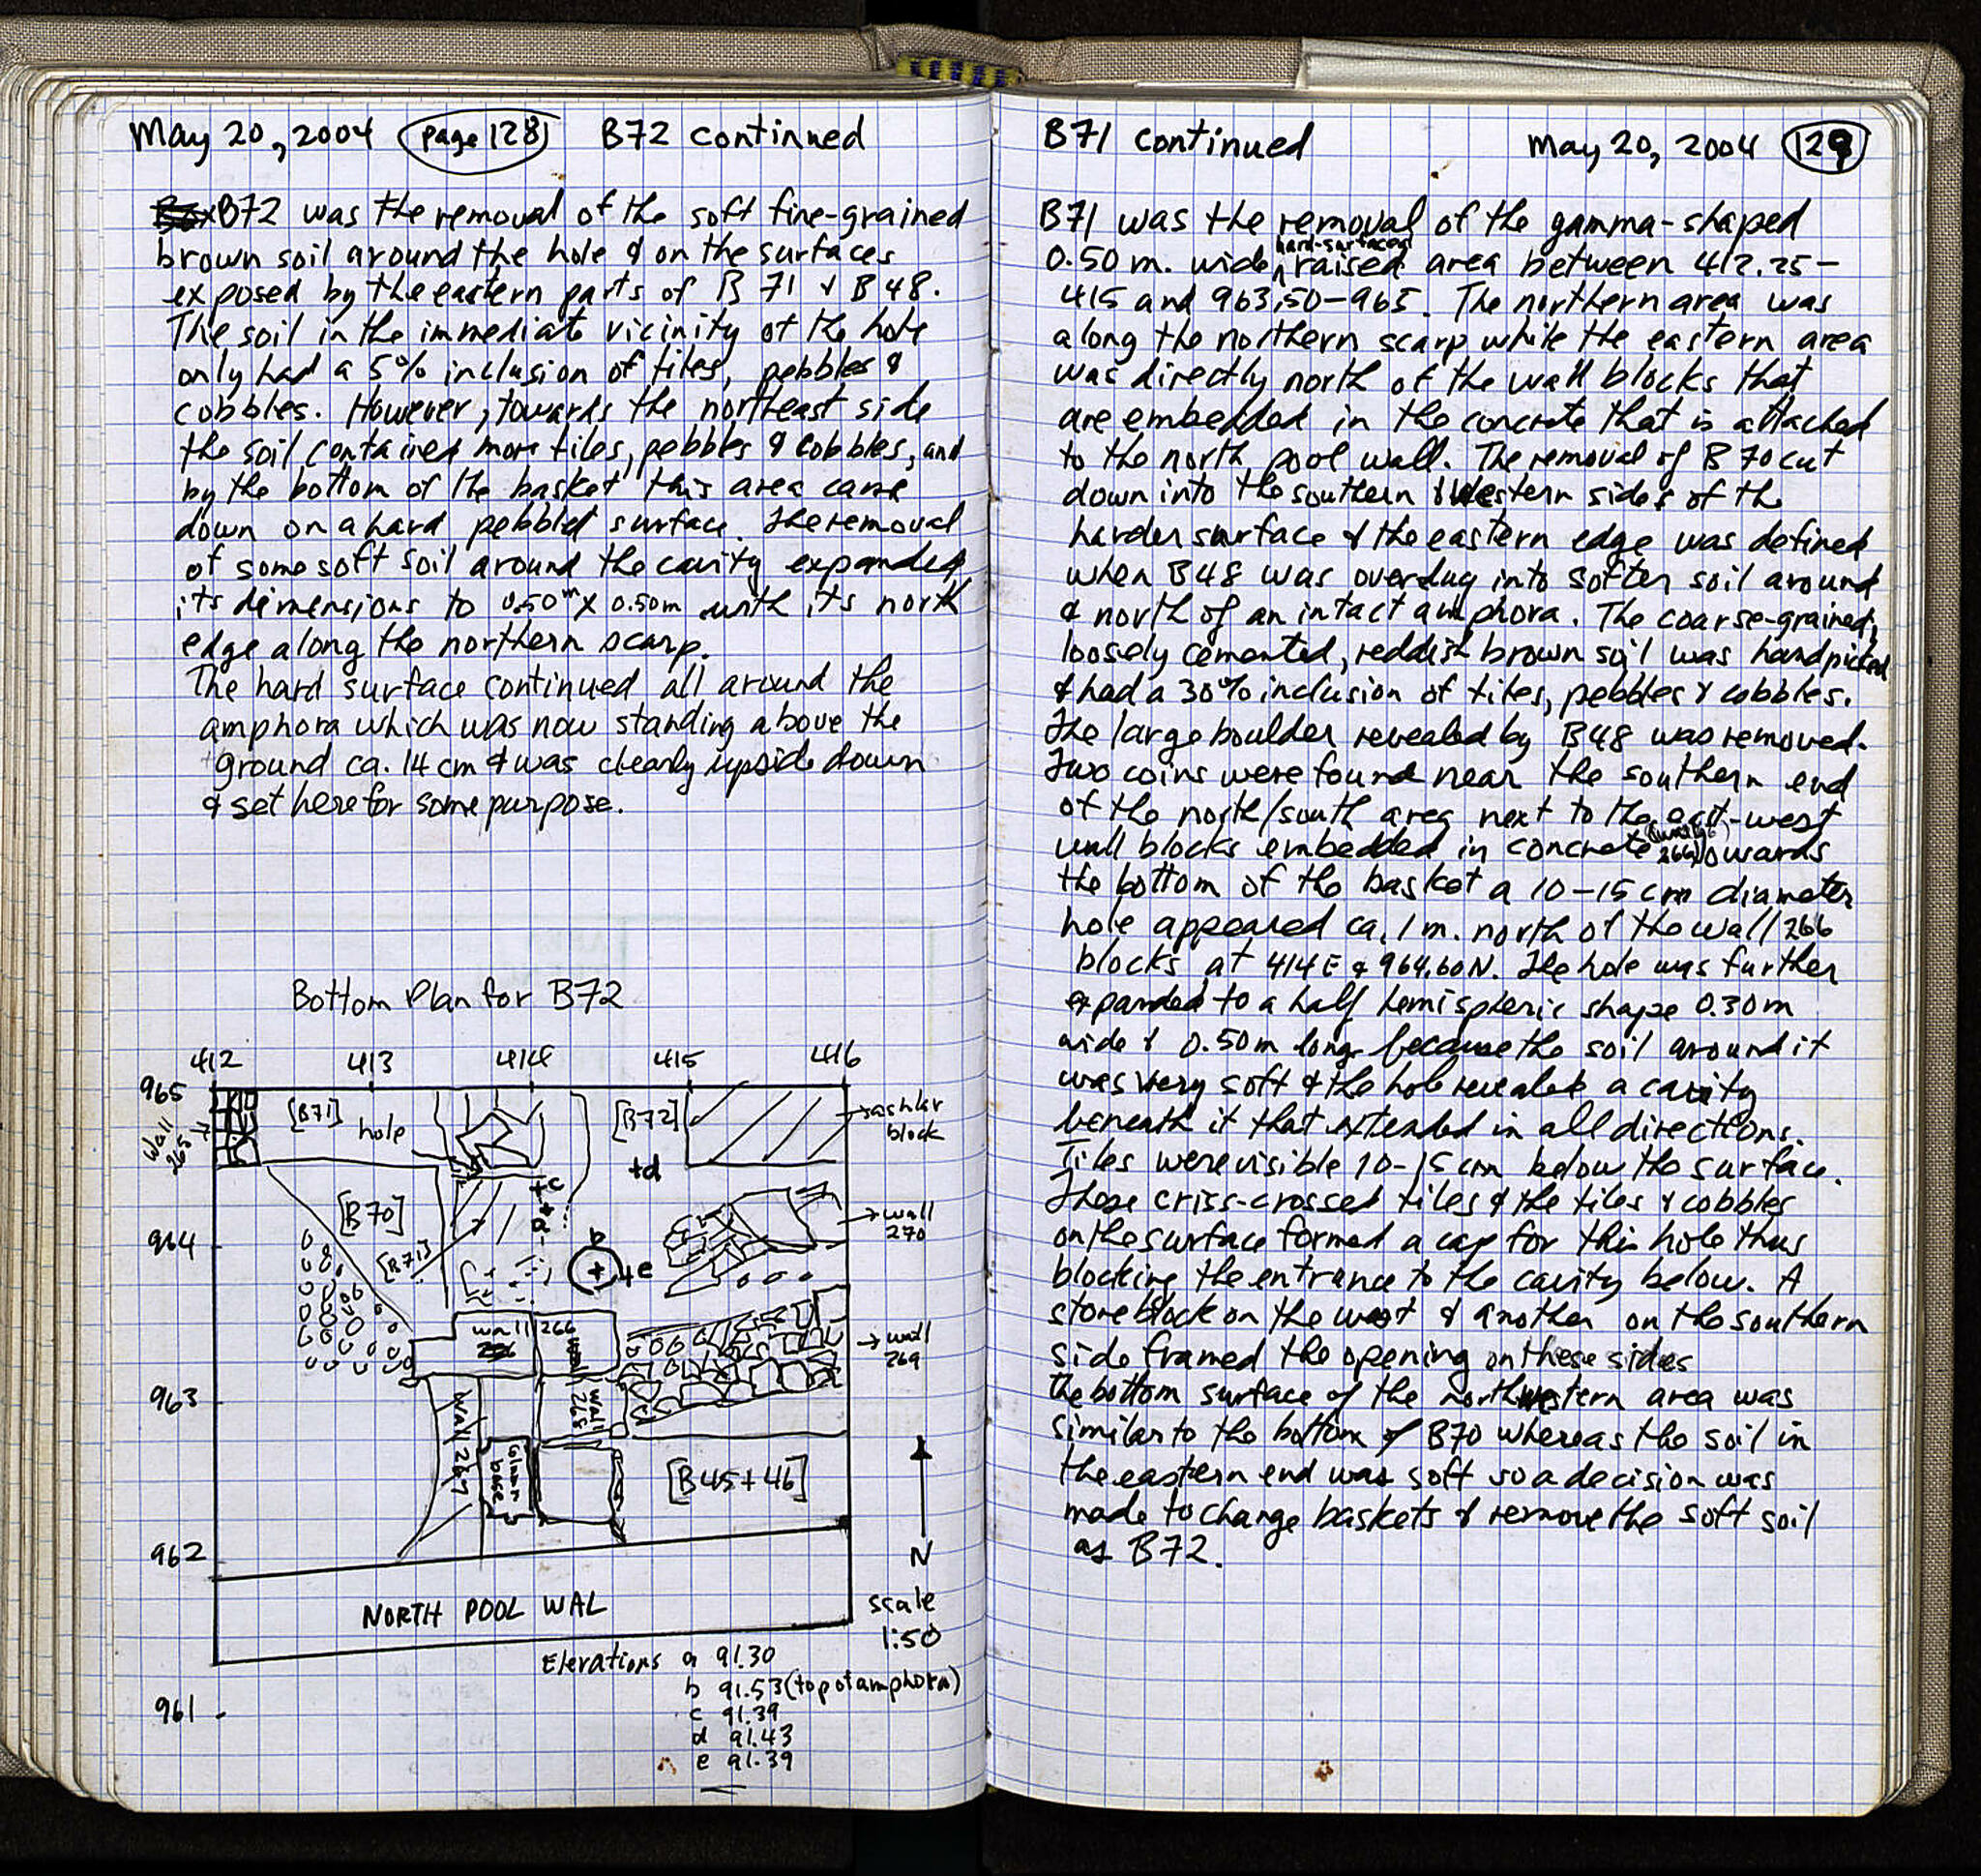 May 20, 2004 page 128 B72 continued
B72 was the removal of the soft fine-grained
brown soil around the hole & on the surfaces
exposed by the eastern parts of B71 & B48.
The soil in the immediate vicinity of the hole
only had a 5% inclusion of tiles, pebbles &
cobbles. However, towards the northeast side
the soil contained more tiles, pebbles & cobbles, and
by the bottom of the basket this area came
down on a hard pebbled surface. The removal
of some soft soil around the cavity expanded
its dimensions to 0.50m x 0.50m with its north
edge along the northern scarp.
The hard surface continued all around the
amphora which was now standing above the
ground ca. 14 cm & was clearly upside down
& set here for some purpose.
Bottom Plan for B72
412 413 414 415 416
965
[B71]
hole
[B72]
ashlar
block
wall
265
+d
+c
[B70]
a
wall
270
964
b
[B71]
+e
wall 266
wall
wall
269
963
wall
268
wall 267
column
base
[B45+46]
962
N
NORTH POOL WAL
scale
1:50
Elevations a 91.30
b 91.53 (top of amphora)
961
c 91.39
d 91.43
e 91.39
B71 continued May 20, 2004 129
B71 was the removal of the gamma-shaped
0.50 m. wide hard-surfaced raised area between 412.25-
415 and 963.50-965. The northern area was
along the northern scarp while the eastern area
was directly north of the wall blocks that
are embedded in the concrete that is attached
to the north pool wall. The removal of B70 cut
down into the southern & western sides of the
harder surface & the eastern edge was defined
when B48 was overdug into softer soil around
& north of an intact amphora. The coarse-grained,
loosely cemented, reddish brown soil was handpicked
& had a 30% inclusion of tiles, pebbles & cobbles.
The large boulder revealed by B48 was removed.
Two coins were found near the southern end
of the north/south area next to the east-west
wall blocks embedded in concrete (wall 266) towards
the bottom of the basket a 10-15 cm diameter
hole appeared ca. 1 m. north of the wall 266
blocks at 414E & 964.60N. The hole was further
expanded to a half hemispheric shape 0.30m
wide & 0.50m long because the soil around it
was very soft & the hole revealed a cavity
beneath it that extended in all directions.
Tiles were visible 10-15 cm below the surface.
These criss-crossed tiles & the tiles & cobbles
on the surface formed a cap for this hole thus
blocking the entrance to the cavity below. A
stone block on the west & another on the southern
side framed the opening on these sides
the bottom surface of the northwestern area was
similar to the bottom of B70 whereas the soil in
the eastern end was soft so a decision was
made to change baskets & remove the soft soil
as B72.